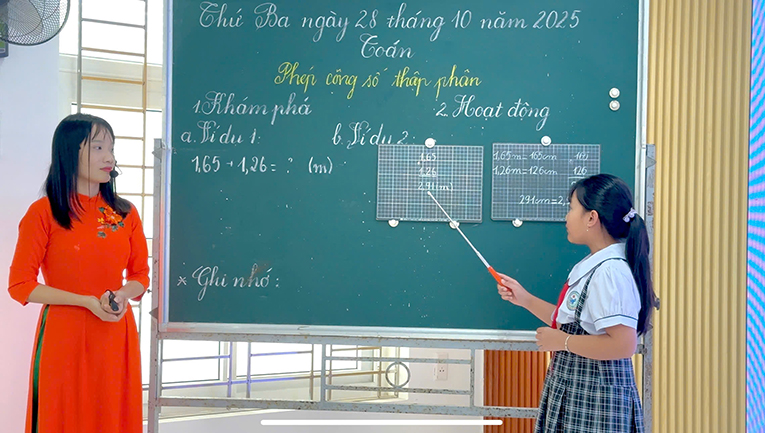 Thứ Ba ngày 28 tháng 10 năm 2025
Toán
Phép cộng số thập phân
1. Khám phá
2. Hoạt động
a. Ví dụ 1:
b. Ví dụ 2:
1,65 + 1,26 = ? (m)
1,65
1,26
2,91 (m)
1,65m = 165cm
1,26m = 126cm
165
126
291cm = 2,
* Ghi nhớ: